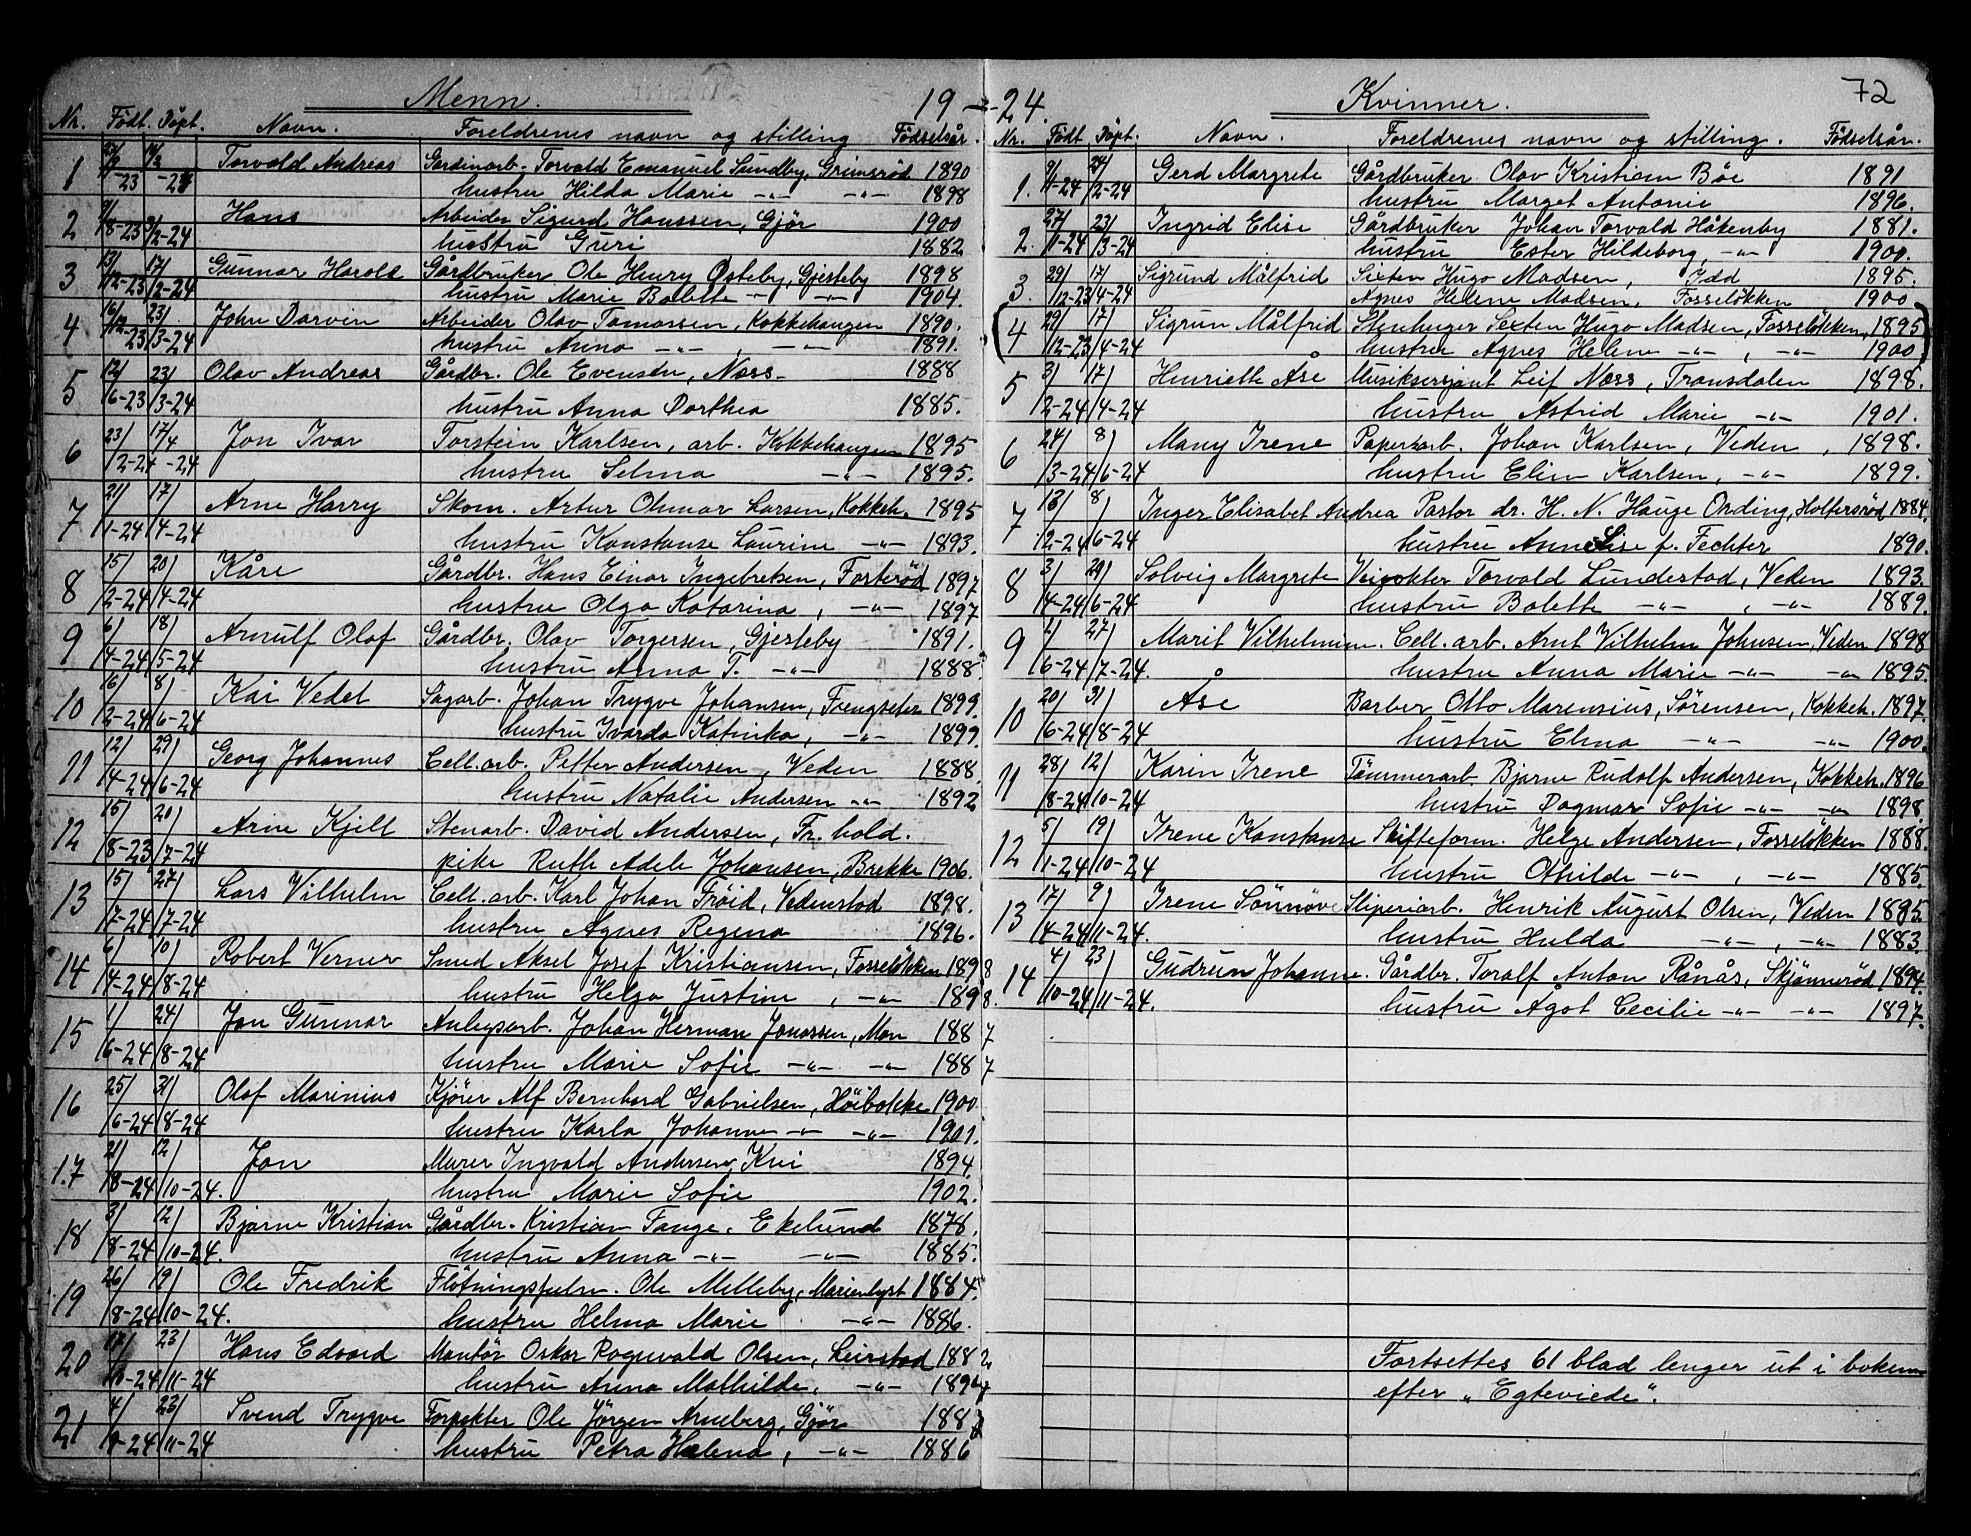 72
Menn. 19 - 24.
Nr. Født. Døpt. Navn. Foreldrenes navn og stilling Fødselsår.
1 27/9 -23 Torvald Andreas Torvald Emanuel Sundby, Grimsrød 1890
hustru Hilda Marie -"- -"- 1898
2 9/8-23 3/2-24 Hans Arbeider Sigurd Hanssen, Gjør 1900
hustru Guri 1882
3 13/12-23 17/2-24 Gunnar Harold Gårdbruker Ole Henry Østeby, Gjesteby 1898
hustru Marie Bolette -"- -"- 1904.
4 16/12-23 23/3-24 John Darvin Arbeider Olav Tomassen, Kokkehaugen 1890.
hustru Anna -"- , -"- 1891.
5 12/6-23 23/3-24 Olav Andreas Gårdbr. Ole Evensen, Næss- 1888
hustru Anna Dorthea 1885.
6 23/2-24 17/4-24 Jon Ivar Torstein Karlsen, arb. Kokkehaugen 1895
hustru Selma -"- 1895.
7 21/1-24 17/4-24 Arne Harry Skom. Artur Olmar Larsen, Kokkeh. 1895
hustru Konstanse Laurine -"- 1893.
8 15/2-24 20/4-24 Kåre Gårdbr. Hans Einar Ingebretsen, Forterød 1897
hustru Olga Katarina, -"- 1897
9 6/4-24 18/5-24 Arnulf Olaf Gårdbr. Olav Torgersen, Gjesteby 1891.
hustru Anna T. -"- 1888.
10 16/2-24 8/6-24 Kai Vedel Sagarb. Johan Trygve Johansen, 1899.
hustru Ivarda Katinka, -"- 1899.
11 12/4-24 29/6-24 Georg Johannes Cell. arb. Petter Andersen, Veden 1888.
hustru Natalie Andersen -"- 1892
12 15/8-23 20/7-24 Arne Kjell Stenarb. David Andersen, Fr.hold.
pike Ruth Adele Johansen, Brekke 1906.
13 15/7-24 27/7-24 Lars Vilhelm Cell. arb. Karl Johan Frøid, Vedenstad 1898.
hustru Agnes Regina 1896.
14 6/4-24 10/8-24 Robert Verner Smed Aksel Josef Kristiansen, Fosseløkken 1898
hustru Helga Justine, -"- 1898.
15 1/6-24 24/8-24 Jon Gunnar Johan Herman Jonassen, Mon 1887
hustru Marie Sofie -"- -"- 1887
16 25/6-24 31/8-24 Olaf Marinius Kjører Alf Bernhard Gabrielsen, Høibakke 1900
hustru Karla Johanne -"- -"- 1901.
17 21/8-24 12/10-24. Jon Murer Ingvald Andersen, 1894.
hustru Marie Sofie 1902.
18 3/8-24 12/10-24. Bjarne Kristian Gårdbr. Kristian Tange. Ekelund 1878.
hustru Anna -"- -"- 1885.
19 26/8-24 19/10-24. Ole Fredrik Ole Melleby, Marienlyst 1884.
hustru Helma Marie -"- 1886.
20 17/10-24 23/11-24 Hans Edvard Montør Oskar Rognvald Olsen, Leirstad 1882
hustru Anna Mathilde, -"- 1894
21 4/9-24 23/11-24 Svend Trygve Forpakter Ole Jørgen Arneberg, Gjør 188
hustru Petra Helena, -"- 1886
Kvinner.
Nr. Født Døpt. Navn. Foreldrenes navn og stilling. Fødselsår.
1. 9/1-24 24/2-24 Gerd Margrete Gårdbruker Olav Kristian Bøe 1891
hustru Marget Antonie 1896.
2. 27/1-24 23/3-24 Ingrid Elise Gårdbruker Johan Torvald Håkenby 1881.
hustru Ester Hildeborg, -"- 1900.
3. 29/12-23 17/4-24 Sigrund Målfrid Sixten Hugo Madsen, Idd 1895.
Agnes Helene Madsen, Fosseløkken 1900.
(4 29/12-23 17/4-24 Sigrun Målfrid Stenhuger Sexten Hugo Madsen, Fosseløkken, 1895)
hustru Agnes Helene -"- , -"- 1900
5 3/2-24 17/4-24 Henriette Åse Musiksersjant Leif Næss, Transdalen 1898.
hustru Astrid Marie -"- 1901.
6 24/3-24 8/6-24 Many Irene Papirarb. Johan Karlsen, Veden, 1898.
hustru Elin Karlsen, -"- 1899.
7 13/2-24 8/6-24 Inger Elisabet Andrea Pastor dr. H. N. Hauge Ording, Holtersrød 1884.
hustru Anne Lise f. Fechter 1890.
8 3/4-24 29/6-24 Solveig Margrete Veivokter Torvald Lundestad, Veden 1893.
hustru Bolette -"- , -"- 1889.
9 1/6-24 27/7-24. Marit Vilhelmine. Cell. arb. Arnt Vilhelm Johnsen, Veden 1898
hustru Anna Marie -"- -"- 1895.
10 20/6-24 31/8-24 Åse Barber Otto Marensius, Sørensen, Kokkeh. 1897.
hustru Elna -"- -"- 1900.
11 28/8-24 12/10-24 Karin Irene Tømmerarb. Bjarne Rudolf Andersen, Kokkeh. 1896
hustru Dagmar Sofie -"- -"- 1898.
12 5/1-24 19/10-24 Irene Konstanse Skifteform. Helge Andersen, Fosseløkken 1888.
hustru Othilde -"- , -"- 1885.
13 17/4-24 9/11-24. Irene Sønnøve Sliperiarb. Henrik August Olsen, Veden 1895.
hustru Hulda -"- , -"- 1883.
14 4/10-24 23/11-24. Gudrun Johanne. Gårdbr. Toralf Anton Rånås, Skjønnerød 1894.
hustru Ågot Cecilie -"- -"- 1897.
Fortsettes 61 blad lenger ut i boken
efter „Egteviede".